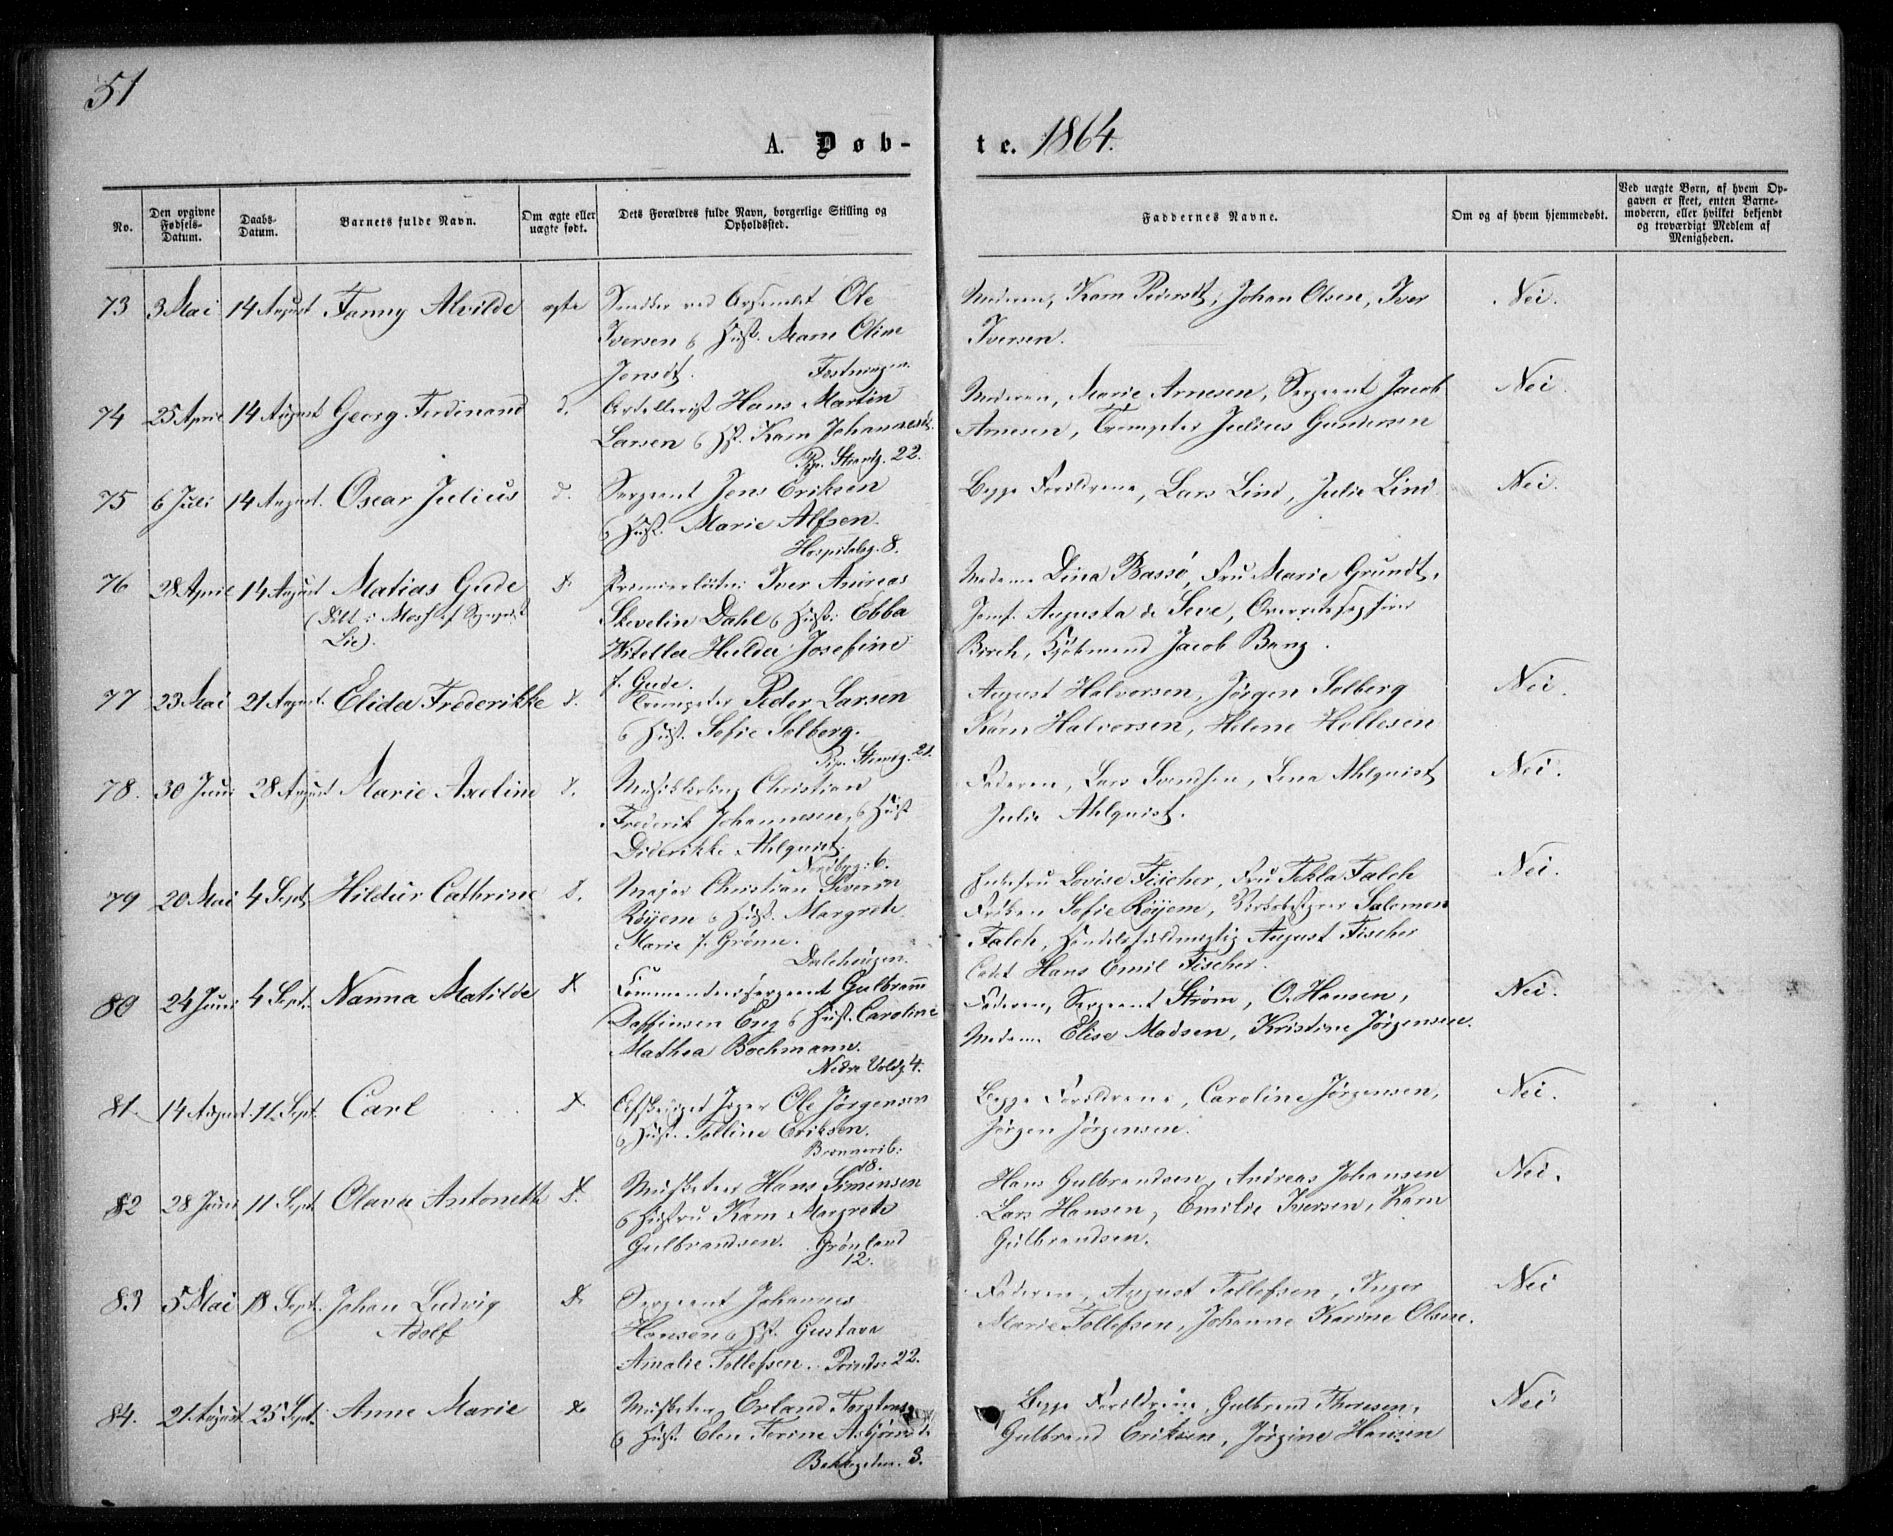 51
A. Døb-
te. 1864.
No.
Den opgivne Fødsels-Datum.
Daabs-Datum.
Barnets fulde Navn.
Om ægte eller uægte født.
Dets Forældres fulde Navn, borgerlige Stilling og Opholdssted.
Faddernes Navne.
Om og af hvem hjemmedøbt.
Ved uægte Børn, af hvem Op-
gaven er skeet, enten Barne-
moderen, eller hvilket bekjendt
og troværdigt Medlem af
Menigheden.
73 3 Mai 14 August Fanny Alvilde ægte
Smed ved Arsenalet Ole
Iversen & Hust. Maren Oline
Jensdt. Festningen.
Moderen, Karn Pedersdt, Johan Olsen, Iver
Iversen.
Nei.
74 25 April 14 August Georg Ferdinand d.
Artillerist Hans Martin
Larsen & Hst. Karn Johannesdt.
Pip. 22.
Moderen, Marie Arnesen, Sergeant Jacob
Arnesen, Trompeter Julius Gundersen
Nei.
75 6 Juli 14 August. Oscar Julius d.
Sergeant Jens Eriksen
& Hust. Marie Alfsen.
Hospitalsg. 8.
Begge Forældrene, Lars Lind, Julie Lind.
Nei.
76 28 April 14 August Matias Gude d.
(Døbt i Moss af Sogneprest
Lie).
Premierløitn. Iver Andreas
Skevelin Dahl & Hust. Ebba
Witella Hulda Josefine
f. Gude.
Madame Lina Bassø, Fru Marie Grundt,
Jomf. Augusta de Seve,
Birch, Kjøbmand Jacob Bang.
77 23 Mai 21 August. Elida Frederikke d.
Trompeter Peder Larsen
& Hust. Sofie Solberg.
Pip. 21.
August Halvorsen, Jørgen Solberg
Karn Halvorsen, Helene Hollesen
Nei.
78. 30 Juni 28 August Marie Axeline d.
Christian
Frederik Johannesen, & Hust
Diderikke Ahlquist.
6.
Faderen, Lars Svendsen, Lena Ahlquist
Julie Ahlquist.
Nei.
79 20 Mai 4 Sept. Hildur Cathrine d.
Major Christian Severin
Røyem & Hust. Margrete
Marie f. Grønn.
Dalehaugen.
Enkefru Lovise Fischer, Fru Tekla Falch
Frøken Sofie Røyem, Salomon
Falch, Handelsfuldmegtig August Fischer
Cadet Hans Emil Fischer.
Nei.
80 24 Juni 4 Sept. Nanna Matilde d.
Commandeersergeant Gulbrann
Daffinsen Eng & Hust. Caroline
Mathea Bochmann.
Nedre Voldg. 4.
Faderen, Sergeant Strøm, O. Hansen,
Madame Elise Madsen, Kristine Jørgensen.
Nei.
81. 14 August 11 Sept. Carl d.
Afskediget Jæger Ole Jørgensen
& Hust. Tolline Eriksen.
18.
Begge Forældrene, Caroline Jørgensen,
Jørgen Jørgensen.
Nei.
82 28 Juni 11 Sept. Olava Antonette d.
Musketeer Hans Simensen
& Hustru Karn Margrete
Gulbrandsen. Grønland
12.
Hans Gulbrandsen, Andreas Johansen
Lars Hansen, Emilie Iversen, Karn
Gulbrandsen.
Nei.
83 5 Mai 18 Sept. Johan Ludvig
Adolf d.
Sergeant Johannes
Hansen & Hst. Gustava
Amalie Tollefsen. 22.
Faderen, August Tollefsen, Inger
Marie Tollefsen, Johanne Karine Olsen.
Nei
84. 21 August 25 Sept. Anne Marie d.
Musketeer Erland Torstens
& Hust. Elen Terine Asbjørnsd.
Bakkegaden. 3.
Begge Forældrene, Gulbrand Thoresen,
Gulbrand Eriksen, Jørgine Hansen
Nei